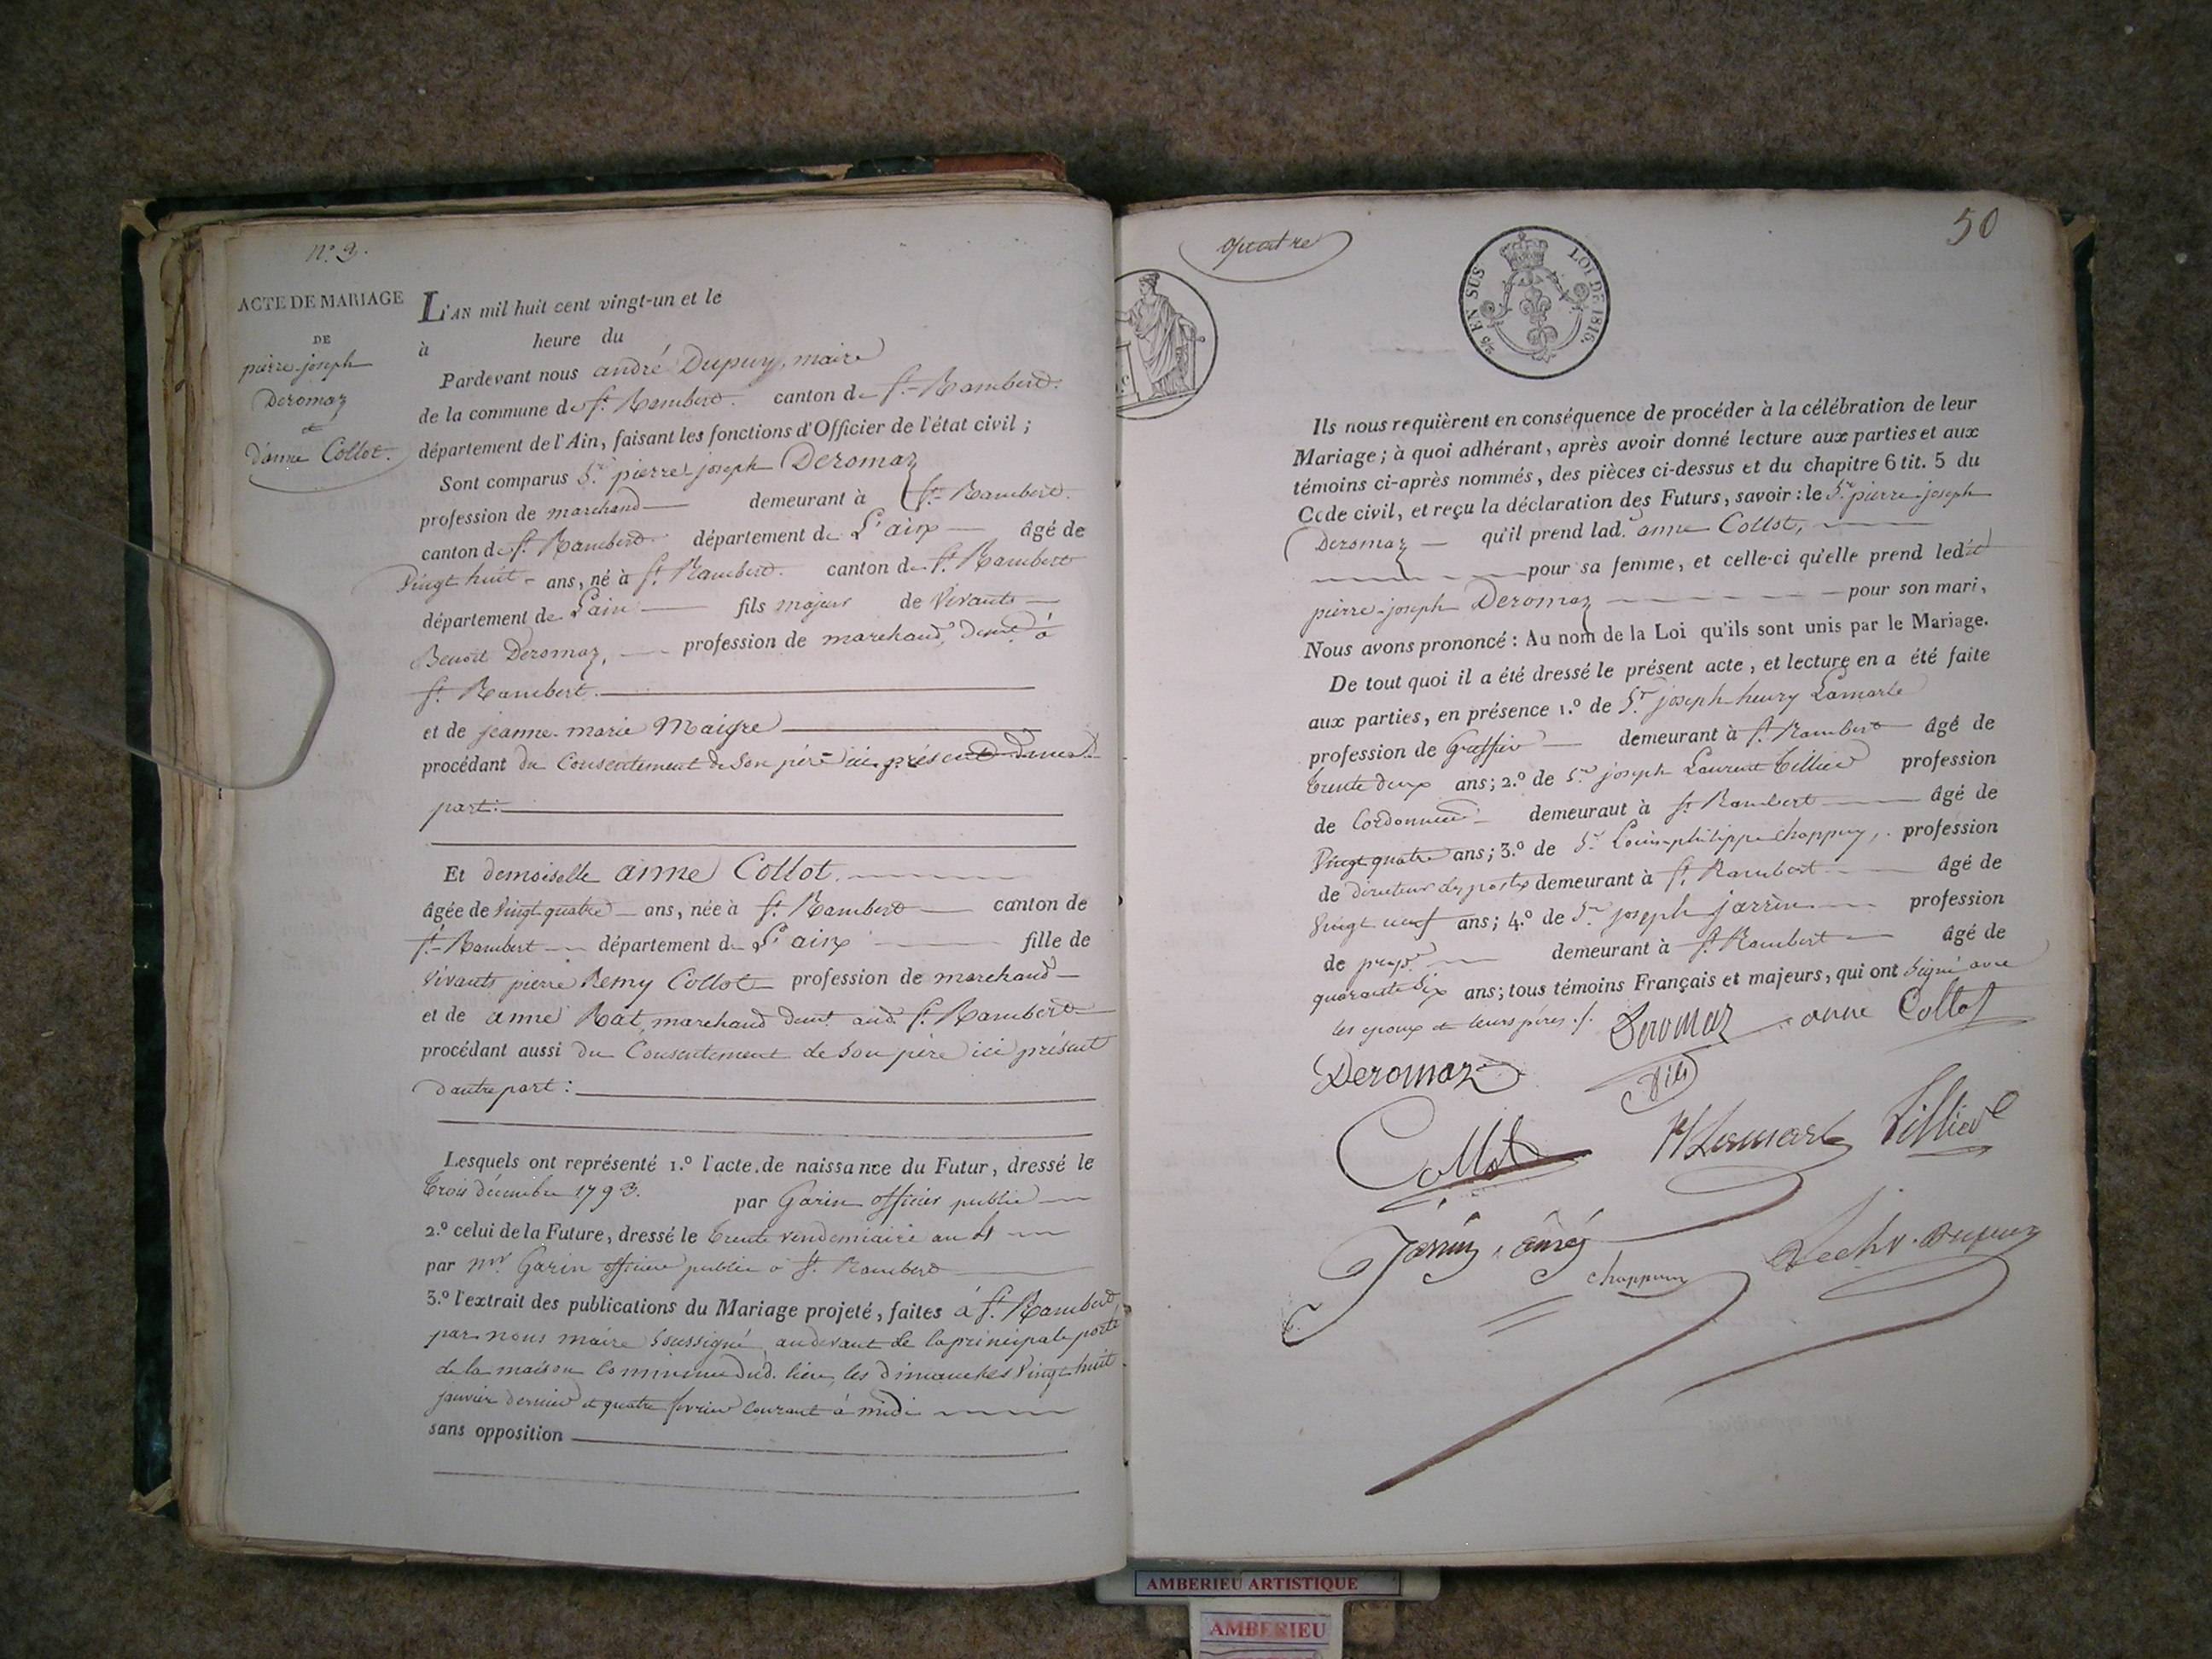 N.º 3.
ACTE DE MARIAGE
DE
pierre-joseph
Deromaz
et
d'anne Collot.
L'AN mil huit cent vingt-un et le
à heure du
Pardevant nous andré Dupuy, maire
de la commune de St. Rambert. canton de St. Rambert.
département de l'Ain, faisant les fonctions d'Officier de l'état civil ;
Sont comparus Sr. pierre-joseph Deromaz
profession de marchand demeurant à St. Rambert.
canton de St. Rambert département de L'ain âgé de
Vingt huit ans, né à St. Rambert. canton de St. Rambert
département de L'ain fils majeur de Vivants
Benoit Deromaz, profession de marchand, demt. à
St. Rambert.
et de jeanne-marie Maigre
procédant du Consentement de Son père ici présent d'une
part :
Et demoiselle anne Collot.
âgée de Vingt quatre ans, née à St. Rambert canton de
St. Rambert département de L'ain fille de
Vivants pierre Remy Collot profession de marchand
et de anne Rat, marchand demt. aud. St. Rambert
procédant aussi du Consentement de Son père ici présent
d'autre part :
Lesquels ont représenté 1.º l'acte de naissance du Futur, dressé le
Trois décembre 1793. par Garin officier public
2.º celui de la Future, dressé le trente vendemiaire an 4
par Mr. Garin officier public à St. Rambert
3.º l'extrait des publications du Mariage projeté, faites à St. Rambert
par nous maire Soussigné, audevant de la principale porte
de la maison Commune dud. lieu, les dimanches Vingt huit
janvier dernier et quatre fevrier Courant à midi
sans opposition
quatre
50
2/5 EN SUS LOI DE 1816.
Ils nous requièrent en conséquence de procéder à la célébration de leur
Mariage ; à quoi adhérant, après avoir donné lecture aux parties et aux
témoins ci-après nommés, des pièces ci-dessus et du chapitre 6 tit. 5 du
Code civil, et reçu la déclaration des Futurs, savoir : le Sr. pierre-joseph
Deromaz qu'il prend lad. anne Collot,
pour sa femme, et celle-ci qu'elle prend ledit
pierre-joseph Deromaz pour son mari,
Nous avons prononcé : Au nom de la Loi qu'ils sont unis par le Mariage.
De tout quoi il a été dressé le présent acte, et lecture en a été faite
aux parties, en présence 1.º de Sr. joseph-henry Lamarle
profession de Greffier demeurant à St. Rambert âgé de
trente deux ans ; 2.º de Sr. joseph Laurent Tillier profession
de Cordonnier demeuraut à St. Rambert âgé de
Vingt quatre ans ; 3.º de Sr. Louis-philippe Chappuy, profession
de directeur des postes demeurant à St. Rambert âgé de
Vingt neuf ans ; 4.º de Sr. joseph jarrin profession
de propre. demeurant à St. Rambert âgé de
quarante Six ans ; tous témoins Français et majeurs, qui ont Signé avec
les epoux et leurs pères ./.
Deromaz anne Collot
Deromaz fils
Collot Lamarle Tillier
Jarrin, ainé
chappuy Dupuy
AMBERIEU ARTISTIQUE
AMBERIEU